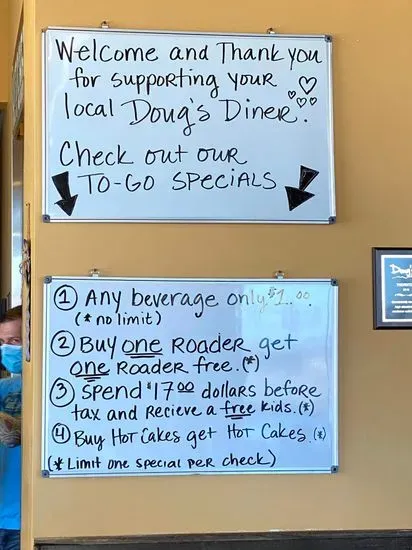 Welcome and Thank you
for supporting your
local Doug's Diner.
Check out our
TO-GO SPECIALS
① Any beverage only $1.00.
(* no limit)
② Buy one Roader get
one Roader free. (*)
③ Spend $17.00 dollars before
tax and Recieve a free kids. (*)
④ Buy Hot Cakes get Hot Cakes. (*)
(* Limit one special per check)
Doug's